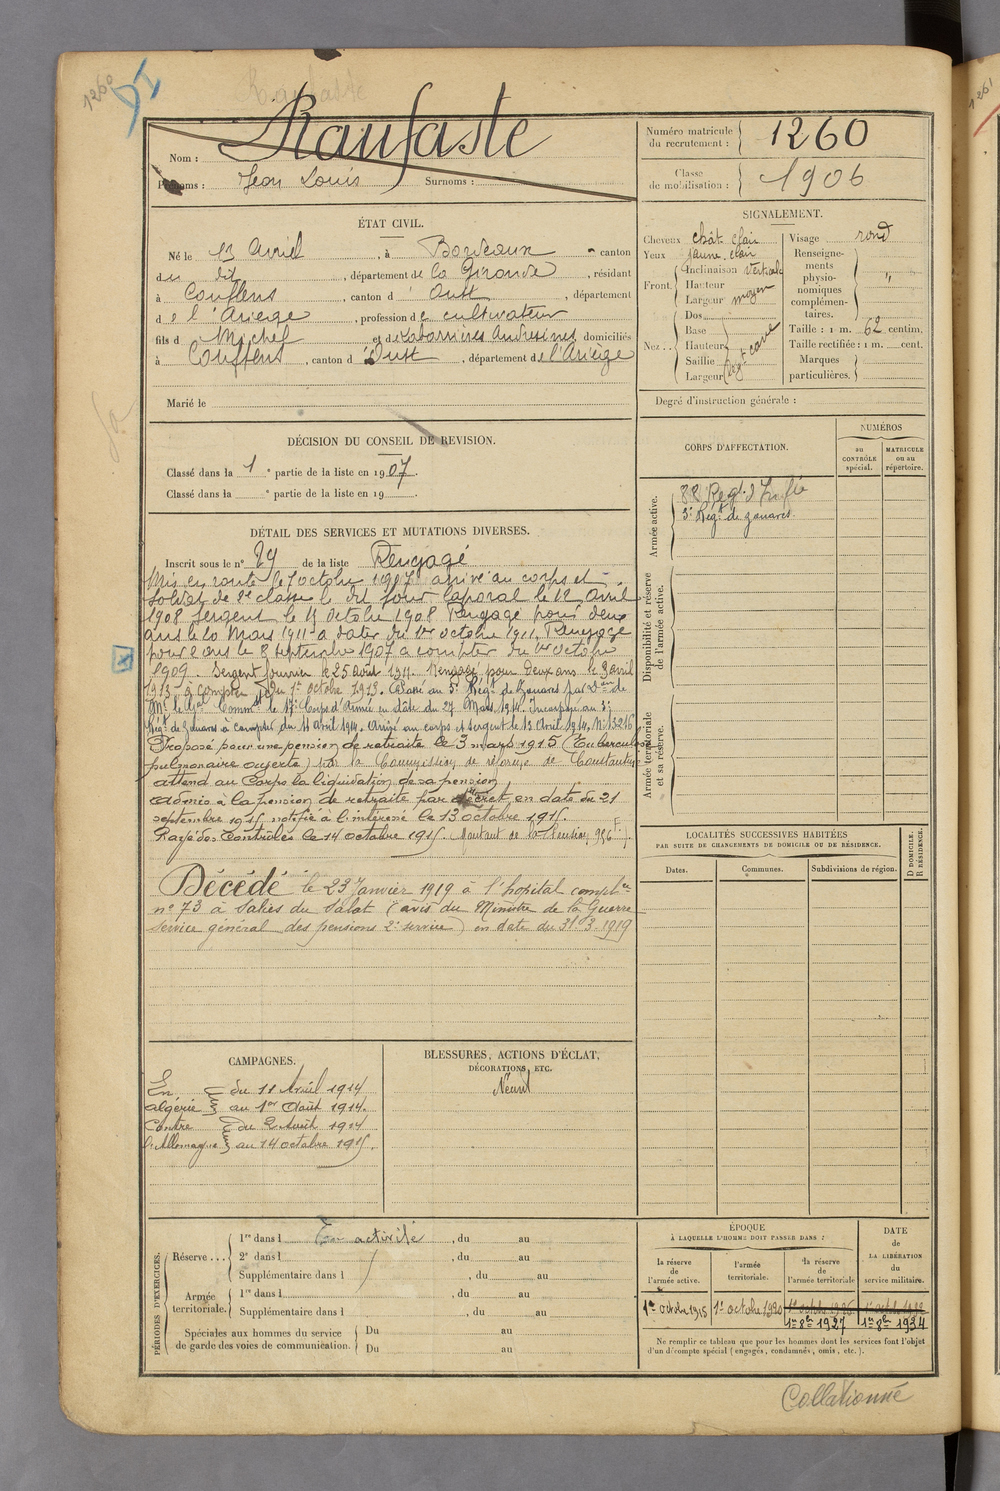 1260
91
Ranfaste
Ranfaste
Nom :
Prénoms : Jean Louis Surnoms :
Numéro matricule du recrutement : 1260
Classe de mobilisation : 1906
ÉTAT CIVIL.
Né le 13 Avril, à Bordeaux - canton
du dit, département de la Gironde, résidant
à Couflens, canton d' Oust, département
de l'Ariège, profession de cultivateur
fils d Michel et de domiciliés
à Couflens, canton d'Oust, département de l'Ariège
Marié le
SIGNALEMENT.
Cheveux chât. clair
Yeux jaune clair
Front. Inclinaison verticale
Hauteur
Largeur moyen
Nez : Dos
Base
Hauteur
Saillie
Largeur
Visage rond
Renseignements physionomiques complémentaires. "
Taille : 1 m. 62 centim.
Taille rectifiée : 1 m. cent.
Marques particulières.
Degré d'instruction générale :
DÉCISION DU CONSEIL DE REVISION.
Classé dans la 1e partie de la liste en 1907.
Classé dans la e partie de la liste en 19 .
CORPS D'AFFECTATION.
NUMÉROS
au CONTRÔLE spécial.
MATRICULE ou au répertoire.
Armée active.
88 Régt d'Inf.ie
3e Régt de zouaves.
Disponibilité et réserve de l'armée active.
Armée territoriale et sa réserve.
DÉTAIL DES SERVICES ET MUTATIONS DIVERSES.
Inscrit sous le n° 29 de la liste Rengagé
Mis en route le 7 octobre 1907 arrivé au corps et
soldat de 2e classe le dit jour Caporal le 12 avril
1908 Sergent le 11 octobre 1908 Rengagé pour deux
ans le 20 Mars 1911 à dater du 1er octobre 1911. Rengagé
pour 2 ans le 8 septembre 1907 à compter du 1er octobre
1909. Sergent fourrier le 25 août 1911. Rengagé pour deux ans le 3 avril
1913 à compter du 1er octobre 1913. Classé au 3e Régt de Zouaves par Don de
Mr le Gal Commt le 17e Corps d'Armée en date du 27 Mars 1914. Incorporé au 3e
Régt de Zouaves à compter du 11 avril 1914. Arrivé au corps et sergent le 13 avril 1914, N° 13216
Proposé pour une pension de retraite le 3 mars 1915 (Tuberculose
pulmonaire ouverte) par la Commission de réforme de Constantine
attend au Corps la liquidation de sa pension
Admis à la pension de retraite par décret en date du 21
septembre 1915 notifié à l'intéressé le 13 octobre 1915.
Rayé des contrôles le 14 octobre 1915. (Montant de la Pension 986 F.)
Décédé le 23 Janvier 1919 à l'hôpital complre
n° 73 à Saliès du Salat (avis du Ministre de la Guerre
service général des pensions 2e service) en date du 31-3-1919
LOCALITÉS SUCCESSIVES HABITÉES
PAR SUITE DE CHANGEMENTS DE DOMICILE OU DE RÉSIDENCE.
Dates.
Communes.
Subdivisions de région.
D DOMICILE.
R RÉSIDENCE.
CAMPAGNES.
En du 11 Avril 1914
algérie au 1er Août 1914.
Contre du 2 Août 1914
l'Allemagne au 14 octobre 1915.
BLESSURES, ACTIONS D'ÉCLAT,
DÉCORATIONS, ETC.
Néant
PÉRIODES D'EXERCICES.
Réserve ... 1re dans l En activité, du au
2e dans l , du au
Supplémentaire dans l , du au
Armée territoriale. 1re dans l , du au
Supplémentaire dans l , du au
Spéciales aux hommes du service de garde des voies de communication. Du au
Du au
ÉPOQUE
À LAQUELLE L'HOMME DOIT PASSER DANS :
la réserve de l'armée active.
l'armée territoriale.
la réserve de l'armée territoriale
DATE de LA LIBÉRATION du service militaire.
1er octobre 1915
1er octobre 1920
1er octobre 1926
1er octobre 1932
1er 8bre 1927
1er 8bre 1934
Ne remplir ce tableau que pour les hommes dont les services font l'objet
d'un décompte spécial (engagés, condamnés, omis, etc.).
Collationné